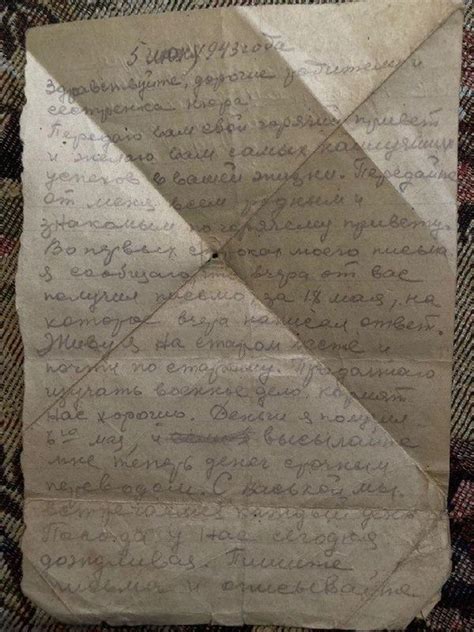 5 июня 1943 года
Здравствуйте, дорогие родители и
сестренка Нюра!
Передаю вам свой горячий привет
и желаю вам самых наилучших
успехов в вашей жизни. Передайте
от меня всем родным и
знакомым по горячему привету.
Во первых строках моего письма
я сообщаю что вчера от вас
получил письмо за 18 мая, на
которое вчера написал ответ.
Живу я на старом месте и
почти по старому. Продолжаю
изучать военное дело, кормят
нас хорошо. Деньги я получил
6го мая, и высылайте
мне теперь денег срочным
переводом. С Васькой мы
встречаемся каждый день
Погода у нас сегодня
дождливая. Пишите
письма и описывайте